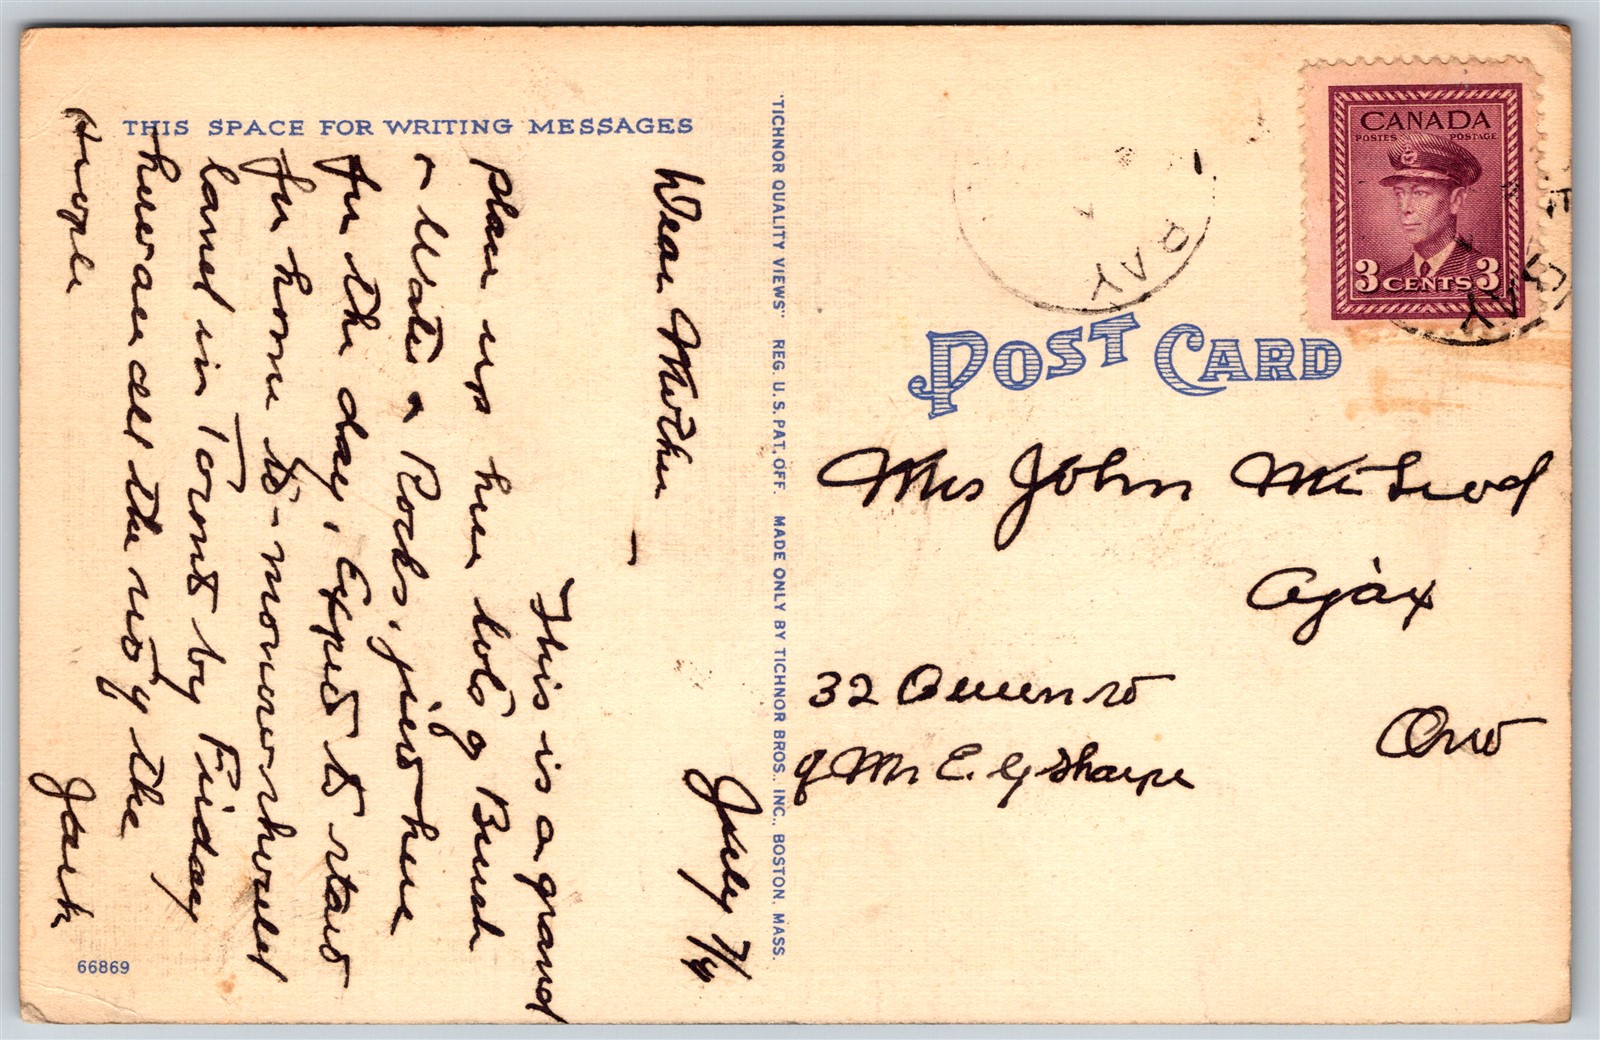 THIS SPACE FOR WRITING MESSAGES
July 7/4
Dear Mother
This is a grand
place up here lots of Bush
& Water & Rocks, just here
for the day, Expect to start
for home to-morrow should
land in Toronto by Friday
how are all the rest of the
people
Jack
66869
"TICHNOR QUALITY VIEWS" REG. U. S. PAT. OFF. MADE ONLY BY TICHNOR BROS., INC., BOSTON, MASS.
CANADA
POSTES POSTAGE
3 CENTS 3
RAY
RAY
POST CARD
Mrs John McLeod
Ajax
32 Queen st
Ont
c/o Mr E. G Sharpe